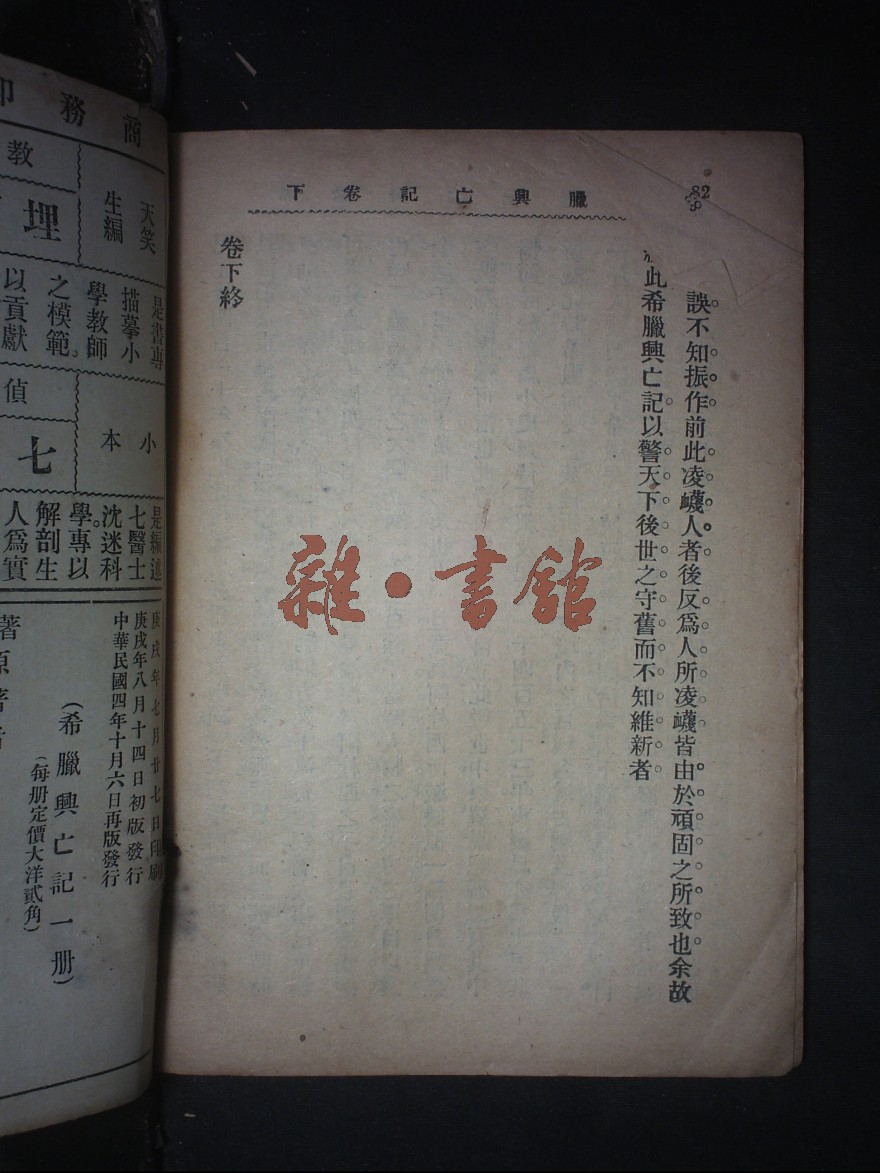 82
臘興亡記卷下
誤不知振作前此凌衊人者後反爲人所凌衊皆由於頑固之所致也余故
此希臘興亡記以警天下後世之守舊而不知維新者
卷下終
雜·書館
商務印
教
天笑
生編
埋
是書專
描摹小
學教師
之模範。
以貢獻
偵
小
本
七
是編述
七醫士
沈迷科
學。專以
解剖生
人爲實
庚戌年七月廿七日印刷
庚戌年八月十四日初版發行
中華民國四年十月六日再版發行
(希臘興亡記一册)
(每册定價大洋貳角)